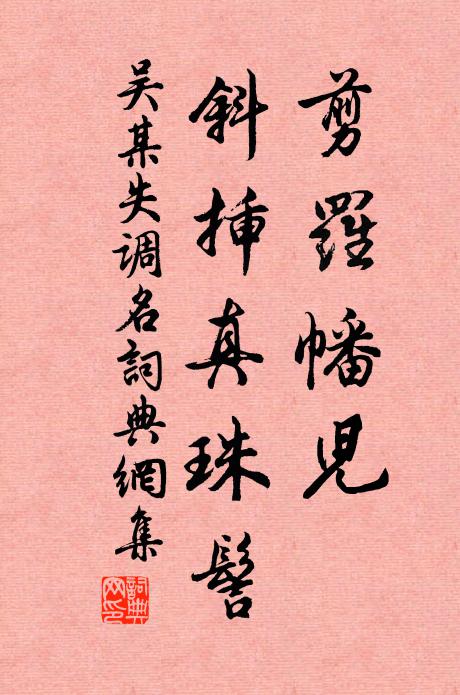 剪羅幡兒
斜揷真珠髻
吴某失調名詞典網集
詞典网印